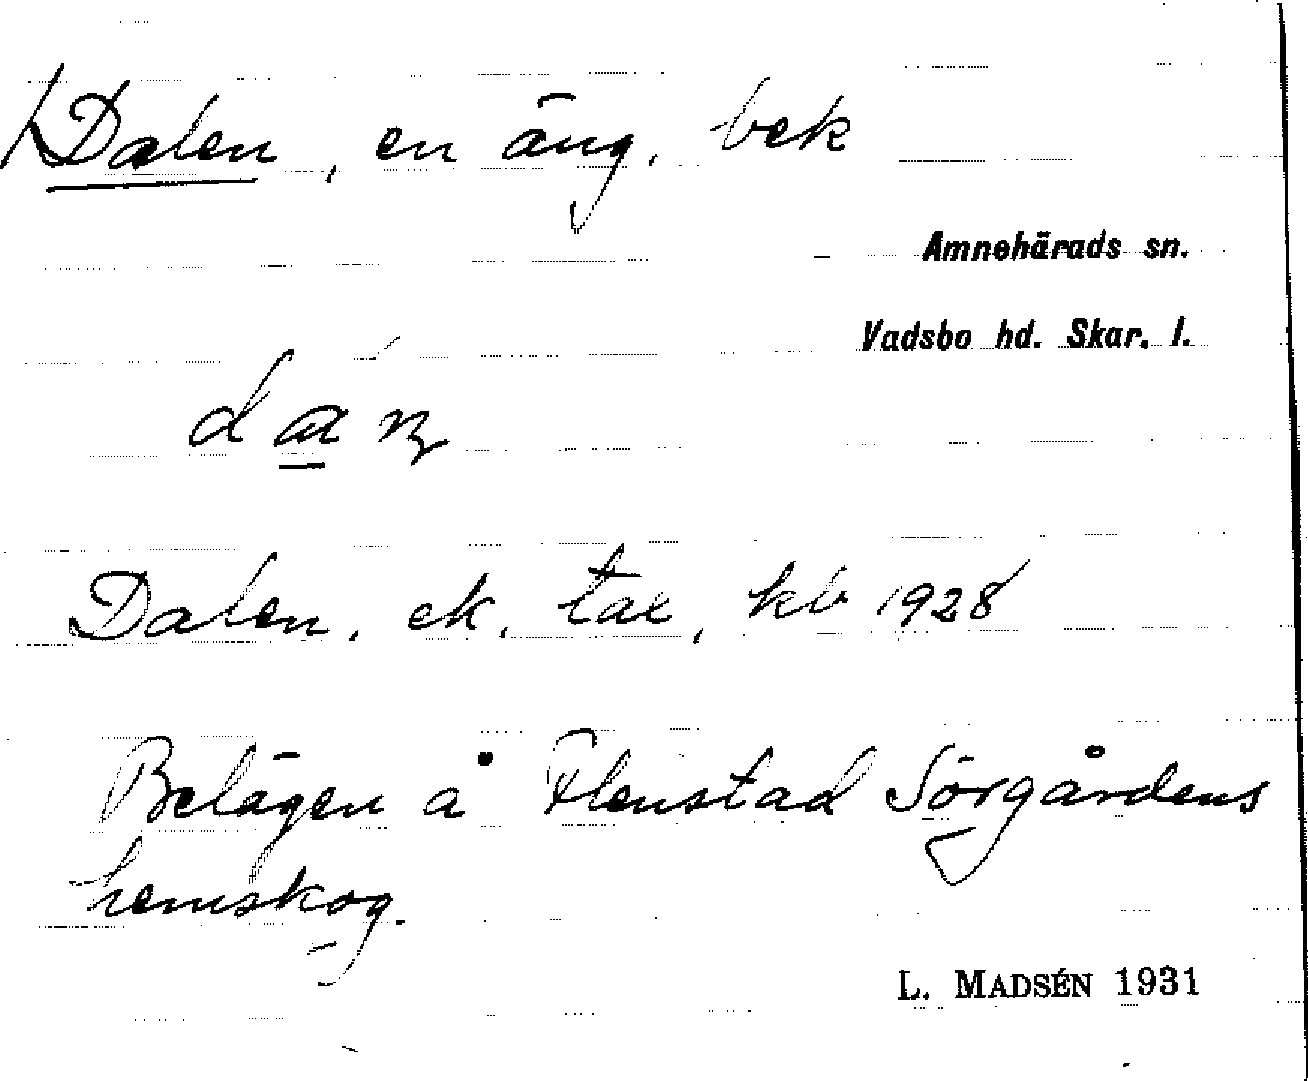 Dalen, en äng, bek
Amnehärads sn.
Vadsbo hd. Skar. l.
Dalen, ek. tax, kb 1928
Belägen å Flenstad Sörgårdens
hemskog.
L. MADSÉN 1931